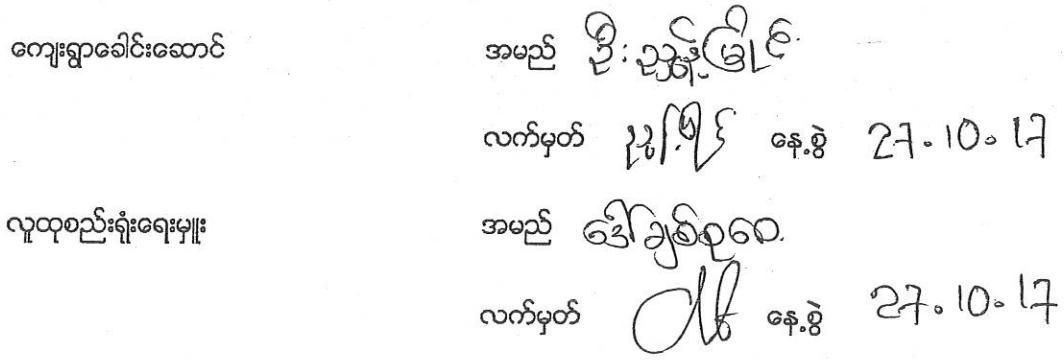 ကျေးရွာခေါင်းဆောင် အမည် ဦး ညွန့်မြိုင်
လက်မှတ် နေ့စွဲ 27.10.17
လူထုစည်းရုံးရေးမှူး အမည် ဒေါ်ချစ်စုဝေ
လက်မှတ် နေ့စွဲ 27.10.17